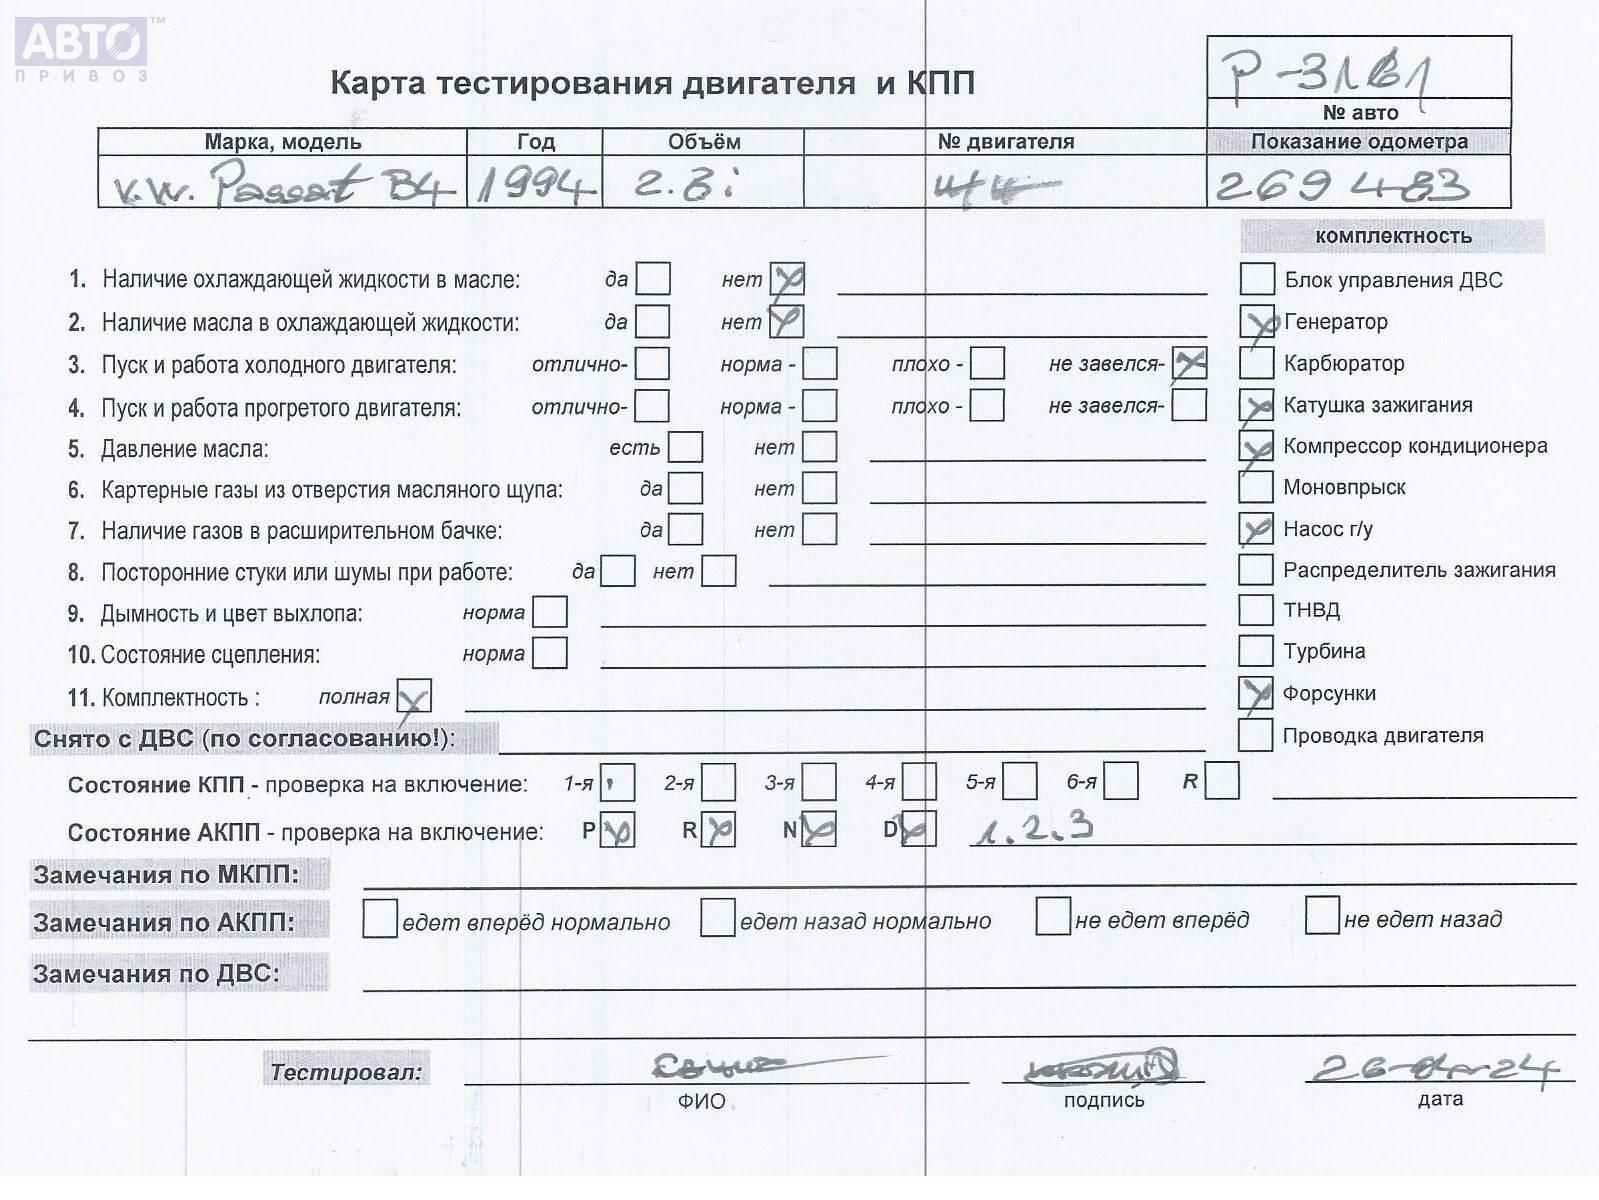 АВТО™
ПРИВОЗ
Карта тестирования двигателя и КПП
№ авто
Марка, модель Год Объём № двигателя Показание одометра
V.W. Passat B4 1994 2.8i 269 483
комплектность
1. Наличие охлаждающей жидкости в масле: да нет Блок управления ДВС
2. Наличие масла в охлаждающей жидкости: да нет Генератор
3. Пуск и работа холодного двигателя: отлично- норма - плохо - не завелся- Карбюратор
4. Пуск и работа прогретого двигателя: отлично- норма - плохо - не завелся- Катушка зажигания
5. Давление масла: есть нет Компрессор кондиционера
6. Картерные газы из отверстия масляного щупа: да нет Моновпрыск
7. Наличие газов в расширительном бачке: да нет Насос г/у
8. Посторонние стуки или шумы при работе: да нет Распределитель зажигания
9. Дымность и цвет выхлопа: норма ТНВД
10. Состояние сцепления: норма Турбина
11. Комплектность : полная Форсунки
Снято с ДВС (по согласованию!): Проводка двигателя
Состояние КПП - проверка на включение: 1-я 2-я 3-я 4-я 5-я 6-я R
Состояние АКПП - проверка на включение: P R N D 1.2.3
Замечания по МКПП:
Замечания по АКПП: едет вперёд нормально едет назад нормально не едет вперёд не едет назад
Замечания по ДВС:
Тестировал:
ФИО подпись дата